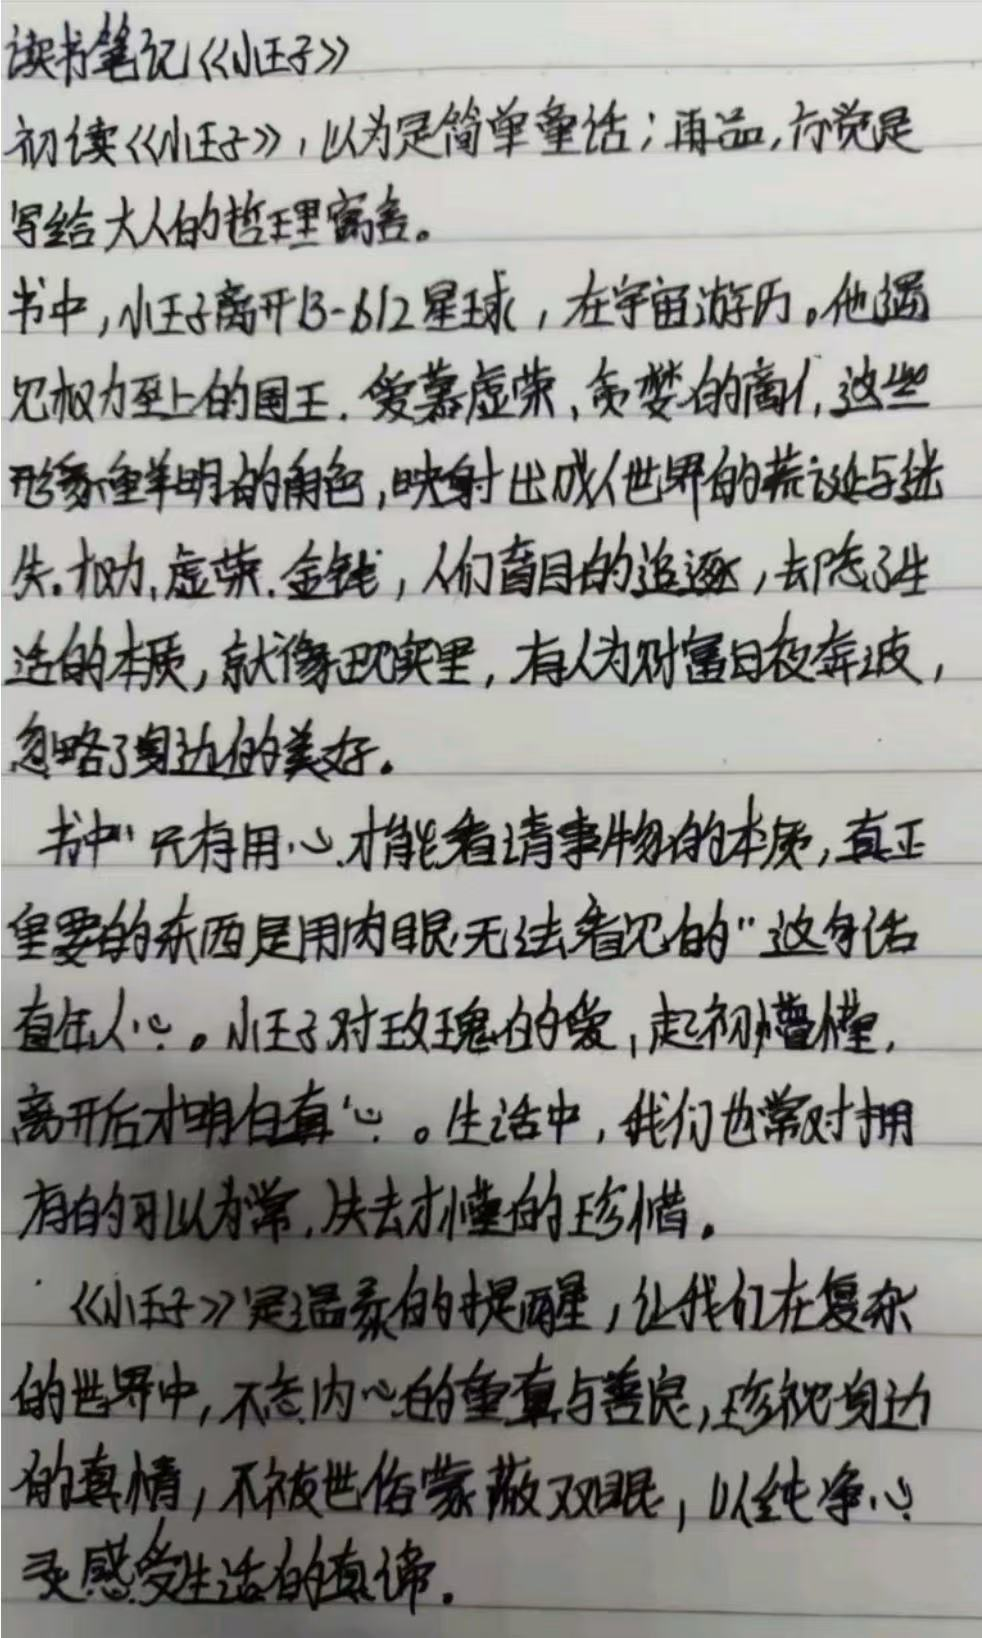 读书笔记《小王子》
初读《小王子》，以为是简单童话；再品，方觉是
写给大人的哲理寓言。
书中，小王子离开B-612星球，在宇宙游历。他遇
见权力至上的国王、爱慕虚荣、贪婪的商人，这些
形象鲜明的角色，映射出成人世界的荒诞与迷
失。权力、虚荣、金钱，人们盲目的追逐，去忘了生
活的本质，就像现实里，有人为财富日夜奔波，
忽略了身边的美好。
书中“只有用心才能看清事物的本质，真正
重要的东西是用肉眼无法看见的”这句话
直击人心。小王子对玫瑰的爱，起初懵懂，
离开后才明白真心。生活中，我们也常对拥
有的习以为常，失去才懂的珍惜。
《小王子》是温柔的提醒，让我们在复杂
的世界中，不忘内心的童真与善良，珍视身边
的真情，不被世俗蒙蔽双眼，以纯净心
灵感受生活的真谛。